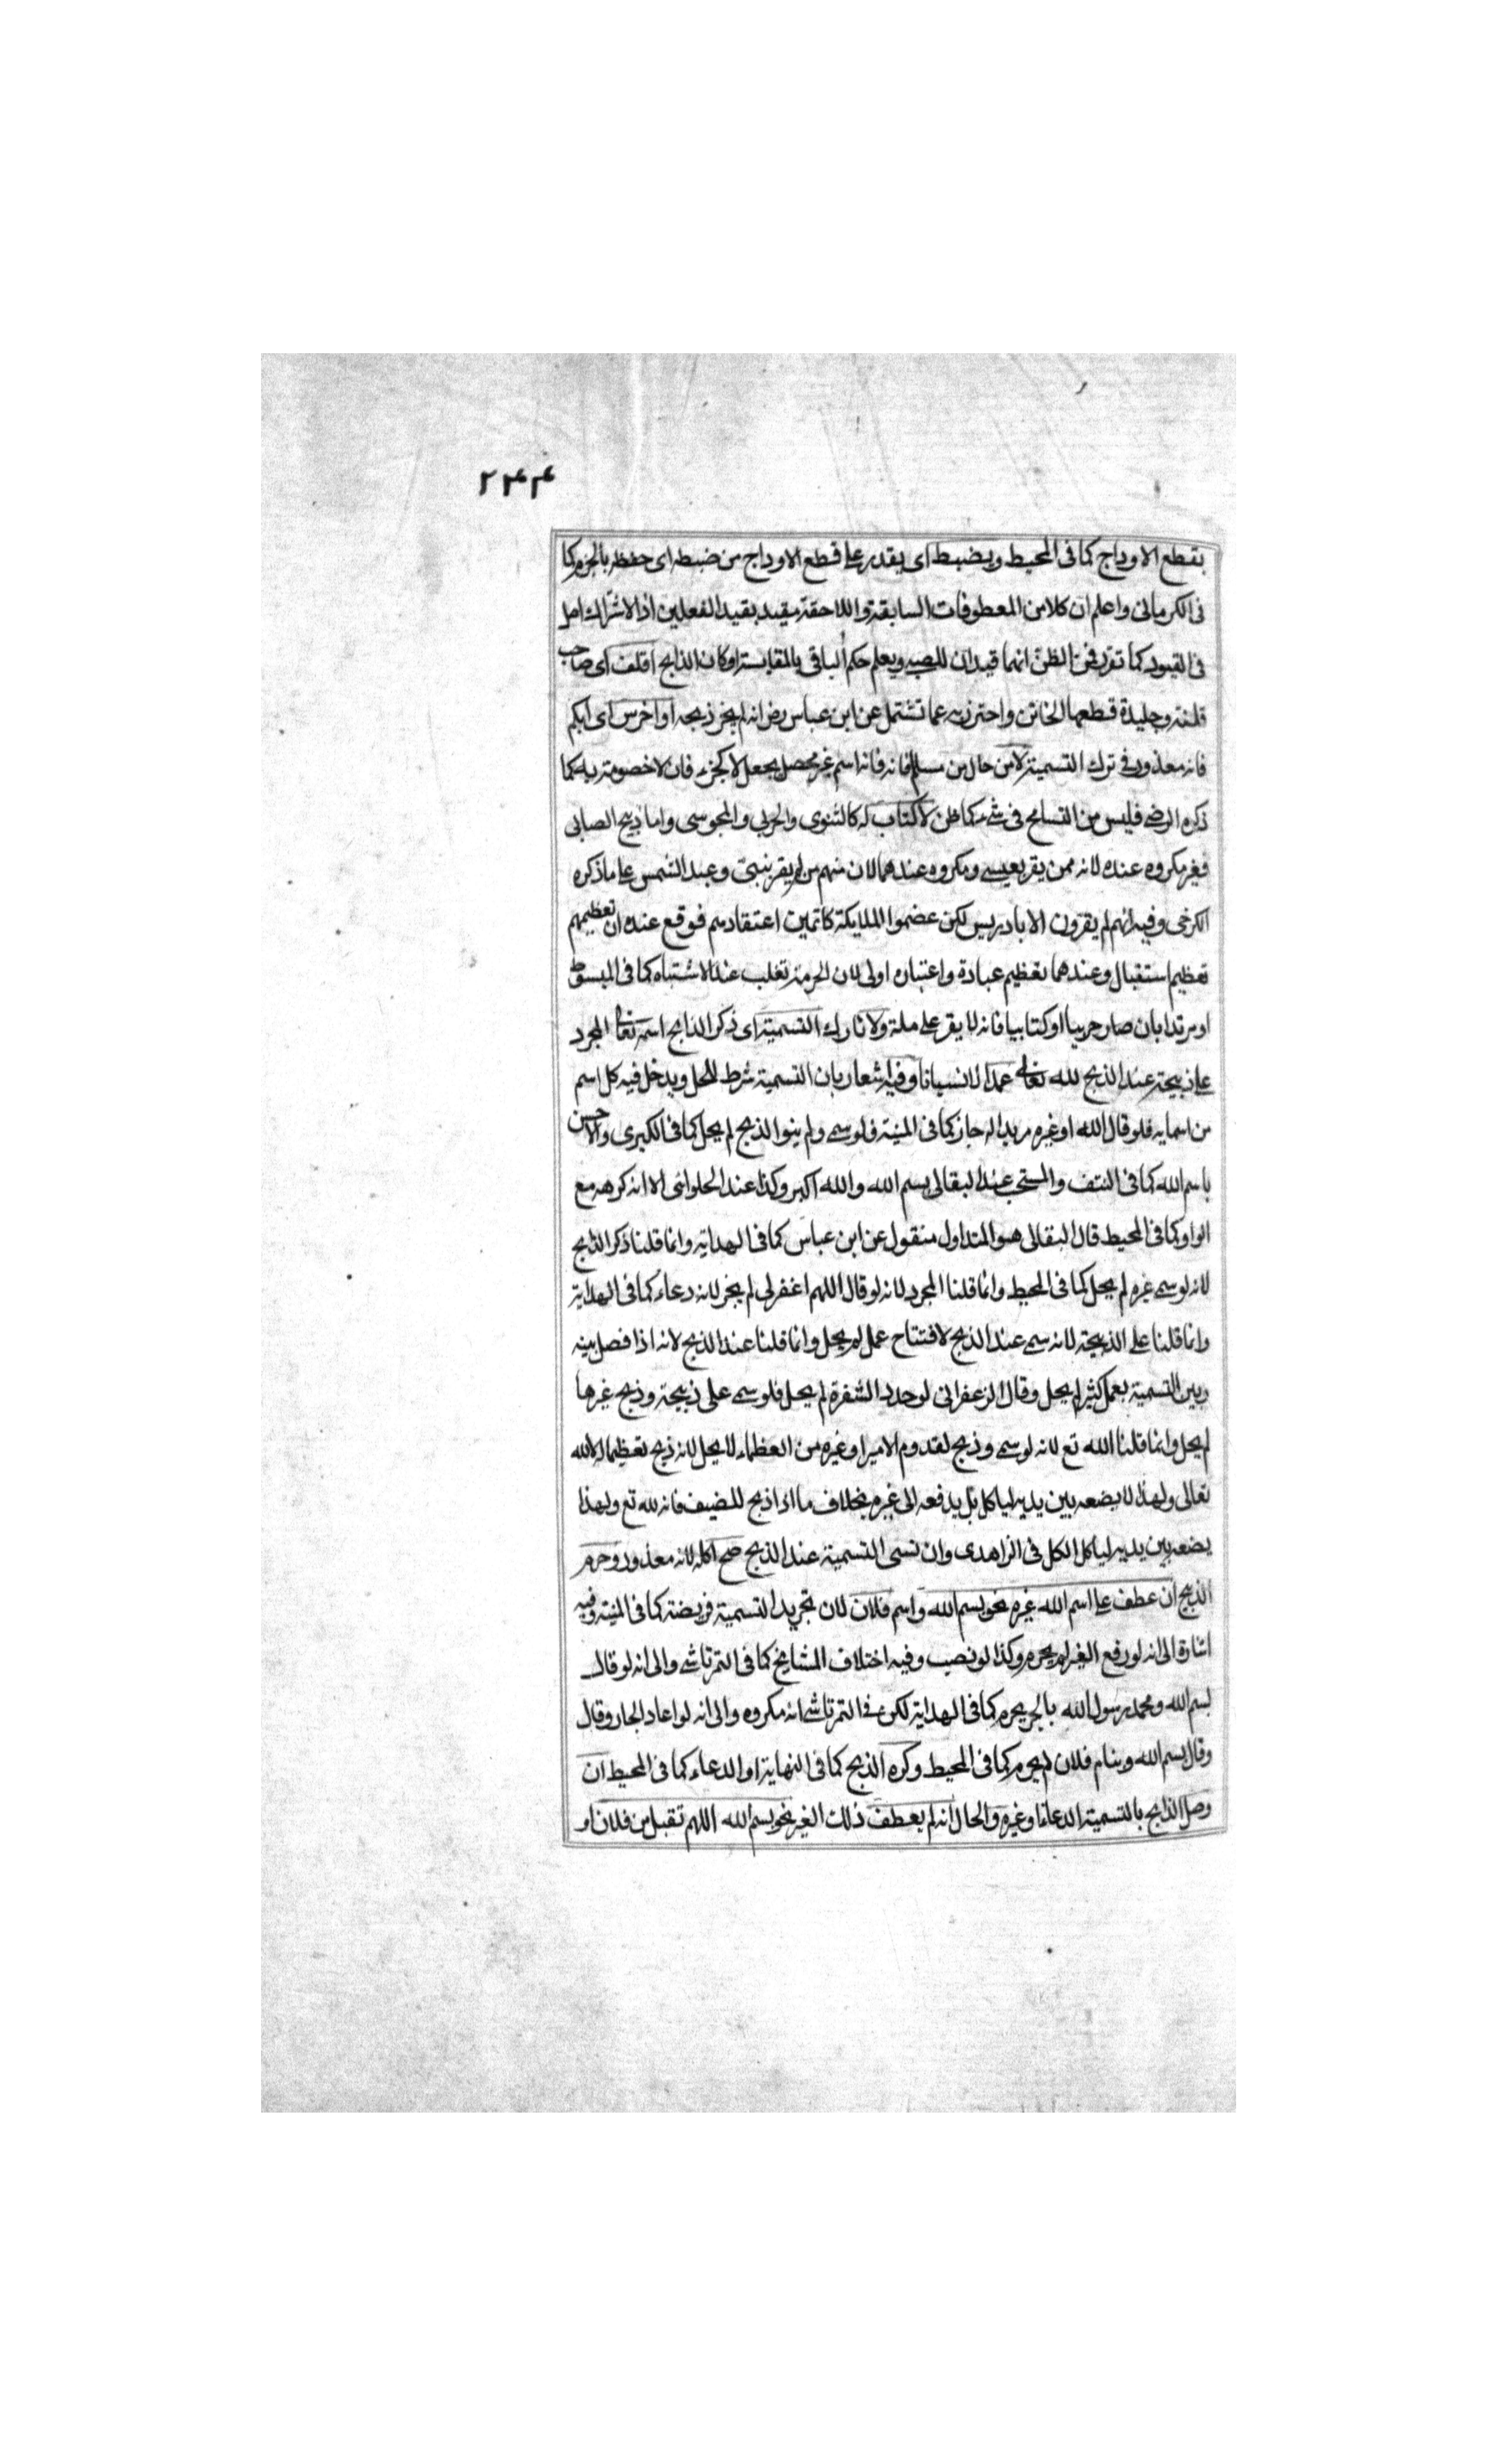 ٢٣٤
بقطع الاوداج كما فى المحيط ويضبط اى يقدر على قطع الاوداج من ضبطه اى حفظه بالجزم كما
فى الكرمانى واعلم ان كلا من المعطوفات السابقة واللاحقة مقيد بقيد الفعلين اذ الاشتراك اصل
فى القيود كما تقرر فمن الظن انهما قيدان للصبى ويعلم حكم الباقى بالمقايسة او كان الذابح اقلف اى صاحب
قلفة وجليدة قطعها الخاتن واحترز به عما تشتمل عن ابن عباس رض انه لم يجز ذبيحه او اخرس اى ابكم
فانه معذور فى ترك التسمية لا من حال من مسلم فانه فانه اسم غير محصل يجعل لا كجزء فان لا خصومة به كما
ذكره الرضى فليس من التسامح فى شئ كما ظن لا كتاب له كالثنوى والحربى والمجوسى واما ذبيح الصابى
فغير مكروه عنده لانه ممن يقر بعيسى ومكروه عندهما لان منهم من لم يقر بنبى وعبد الشمس على ما ذكره
الكرخى وفيه انهم لم يقرون الا بادريس لكن عضموا الملايكة كاتمين اعتقادهم فوقع عنده ان تعظيمهم
تعظيم استقبال وعندهما تعظيم عبادة واعتباره اولى لان الحرمة تغلب عند الاشتباه كما فى المبسوط
او مرتدا بان صار حربيا او كتابيا فانه لا يقر على ملة ولا تارك التسمية اى ذكر الذابح اسمه تعالى المجرد
على ذبيحة عند الذبح لله تعالى عمدا لا نسيانا وفيه اشعار بان التسمية شرط للحل ويدخل فيه كل اسم
من اسمايه فلو قال الله او غيره مريدا له جاز كما فى المنية فلو سمى ولم ينو الذبح لم يحل كما فى الكبرى والاحسن
باسم الله كما فى النتف والمستحب عند البقالى بسم الله والله اكبر وكذا عند الحلوانى الا انه كرهه مع
الواو كما فى المحيط قال البقالى هو المتداول منقول عن ابن عباس كما فى الهداية وانما قلنا ذكر الذابح
لانه لو سمى غيره لم يحل كما فى المحيط وانما قلنا المجرد لانه لو قال اللهم اغفر لى لم يجز لانه دعاء كما فى الهداية
وانما قلنا على الذبيحة لانه سمى عند الذبح لافتتاح عمل لم يحل وانما قلنا عند الذبح لانه اذا فصل بينه
وبين التسمية بعمل كثير لم يحل وقال الزعفرانى لو حدد الشفرة لم يحل فلو سمى على ذبيحة وذبح غيرها
لم يحل وانما قلنا الله تع لانه لو سمى وذبح لقدوم الامير او غيره من العظماء لا يحل لانه ذبح تعظيما له لا لله
تعالى ولهذا لا يضعه بين يديه لياكل بل يدفعه الى غيره بخلاف ما اذا ذبح للضيف فانه لله تع ولهذا
يضعه بين يديه لياكل الكل فى الزاهدى وان نسى التسمية عند الذبح صح اكله لانه معذور وحرم
الذبيح ان عطف على اسم الله غيره نحو بسم الله واسم فلان لان تجريد التسمية فريضة كما فى المنية وفيه
اشارة الى انه لو رفع الغير لم يحرم وكذا لو نصب وفيه اختلاف المشايخ كما فى التمرتاشى والى انه لو قال
بسم الله ومحمد رسول الله بالجر يحرم كما فى الهداية لكن فى التمرتاشى انه مكروه والى انه لو اعاد الجار وقال
وقال بسم الله وبنام فلان لم يحرم كما فى المحيط وكره الذبح كما فى النهاية او الدعاء كما فى المحيط ان
وصل الذابح بالتسمية الدعاء او غيره والحال انه لم يعطف ذلك الغير نحو بسم الله اللهم تقبل من فلان او